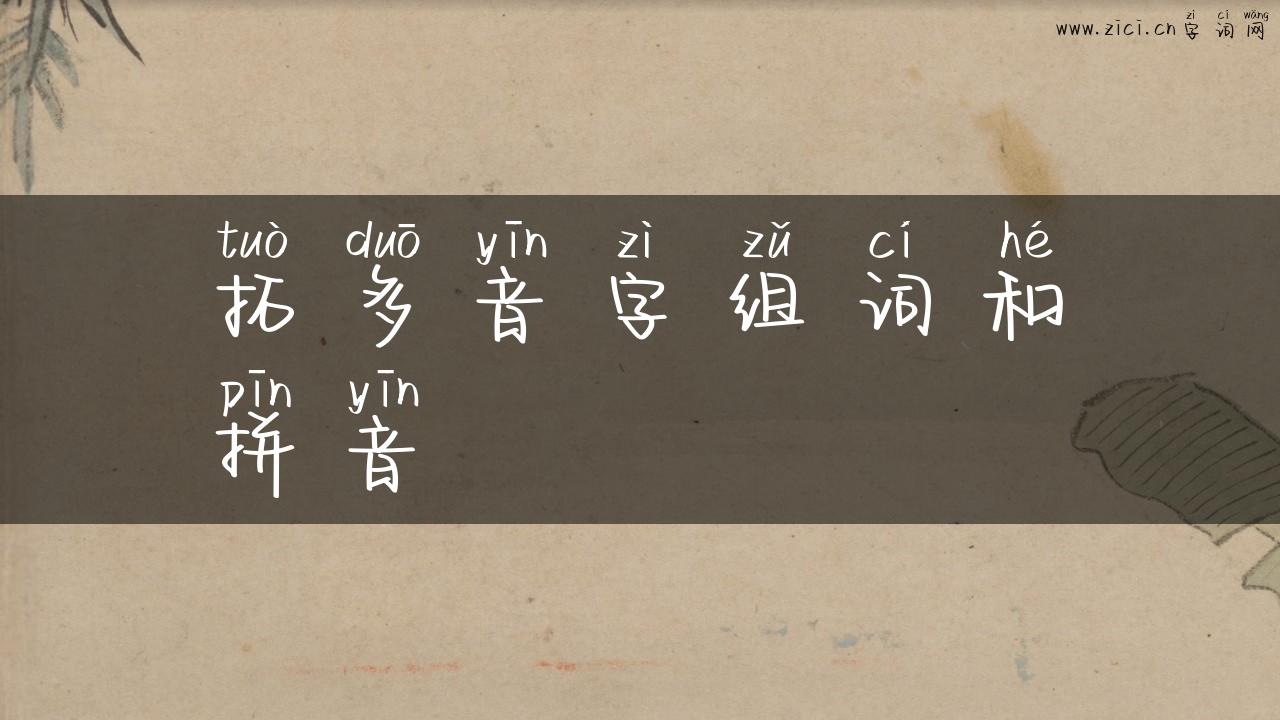 zì cí wǎng
www.zici.cn 字 词 网
tuò duō yīn zì zǔ cí hé
拓 多 音 字 组 词 和
pīn yīn
拼 音